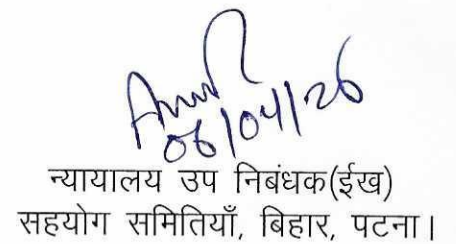 06/04/26
न्यायालय उप निबंधक(ईख)
सहयोग समितियाँ, बिहार, पटना।